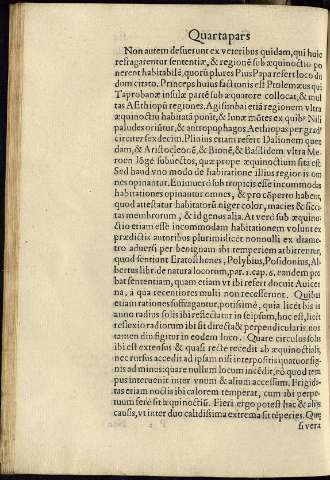 Quarta pars
Non autem defuerunt ex veteribus quidam, qui huic
refragarentur sententiæ, & regionẽ sub æquinoctio po
nerent habitabilẽ, quorũ plures Pius Papa refert loco du
dom citato. Princeps huius factionis est Ptolemæus qui
Taprobanæ insulæ partẽ sub æquatore collocat, & mul
tas AEthiopũ regiones. Agisimbai etiã regionem vltra
æquinoctiũ habitatã ponit, & lunæ mõtes ex quibꝰ Nili
paludes oriũtur, & antropophagos AEthiopas per gradꝰ
circiter sex decim. Plinius etiam refert Dalionem quen
dam, & Aristocleonẽ, & Bionẽ, & Basilidem vltra Me-
roen lõgẽ subuectos, quæ prope æquinoctium sita est.
Sed haud vno modo de habitatione illius regiõis om
nes opinantur. Enimuerò sub tropicis esse incommodas
habitationes opinantur omnes, & pro cõperto habent,
quod attestatur habitatorũ niger color, macies & sicci-
tas membrorum, & id genus alia. At verò sub æquino-
ctio etiam esse incommodam habitationem volunt ex
prædictis autoribus plurimi: licet nonnulli ex diame-
tro aduersi per benignam ibi temperiem arbitrentur,
quod sentiunt Eratosthenes, Polybius, Posidonius, Al-
bertus libr. de natura locorum, par. 1. cap. 6. eandem pro
bat sententiam, quam etiam vt ibi refert docuit Auicen
na, à qua recentiores multi non recesserunt. Quibus
etiam rationes suffragantur, potissimè, quia licèt bis in
anno radius solis ibi reflectatur in seipsum, hoc est, licèt
reflexio radiorum ibi sit directa & perpendicularis, nõ
tamen diu figitur in eodem loco. Quare circulus solis
ibi est extensus & quasi recte recedit ab æquinoctiali,
nec rursus accedit ad ipsam nisi interpositis quatuor sig-
nis ad minus: quare nullum locum incẽdit, eò quod tem
pus interuenit inter vnum & alium accessum. Frigidi-
tas etiam noctis ibi calorem temperat, cum ibi perpe-
tuum ferè sit æquinoctiũ. Fieri ergo potest hac & alijs
causis, vt inter duo calidissima extrema sit tẽperies. Quę
si vera